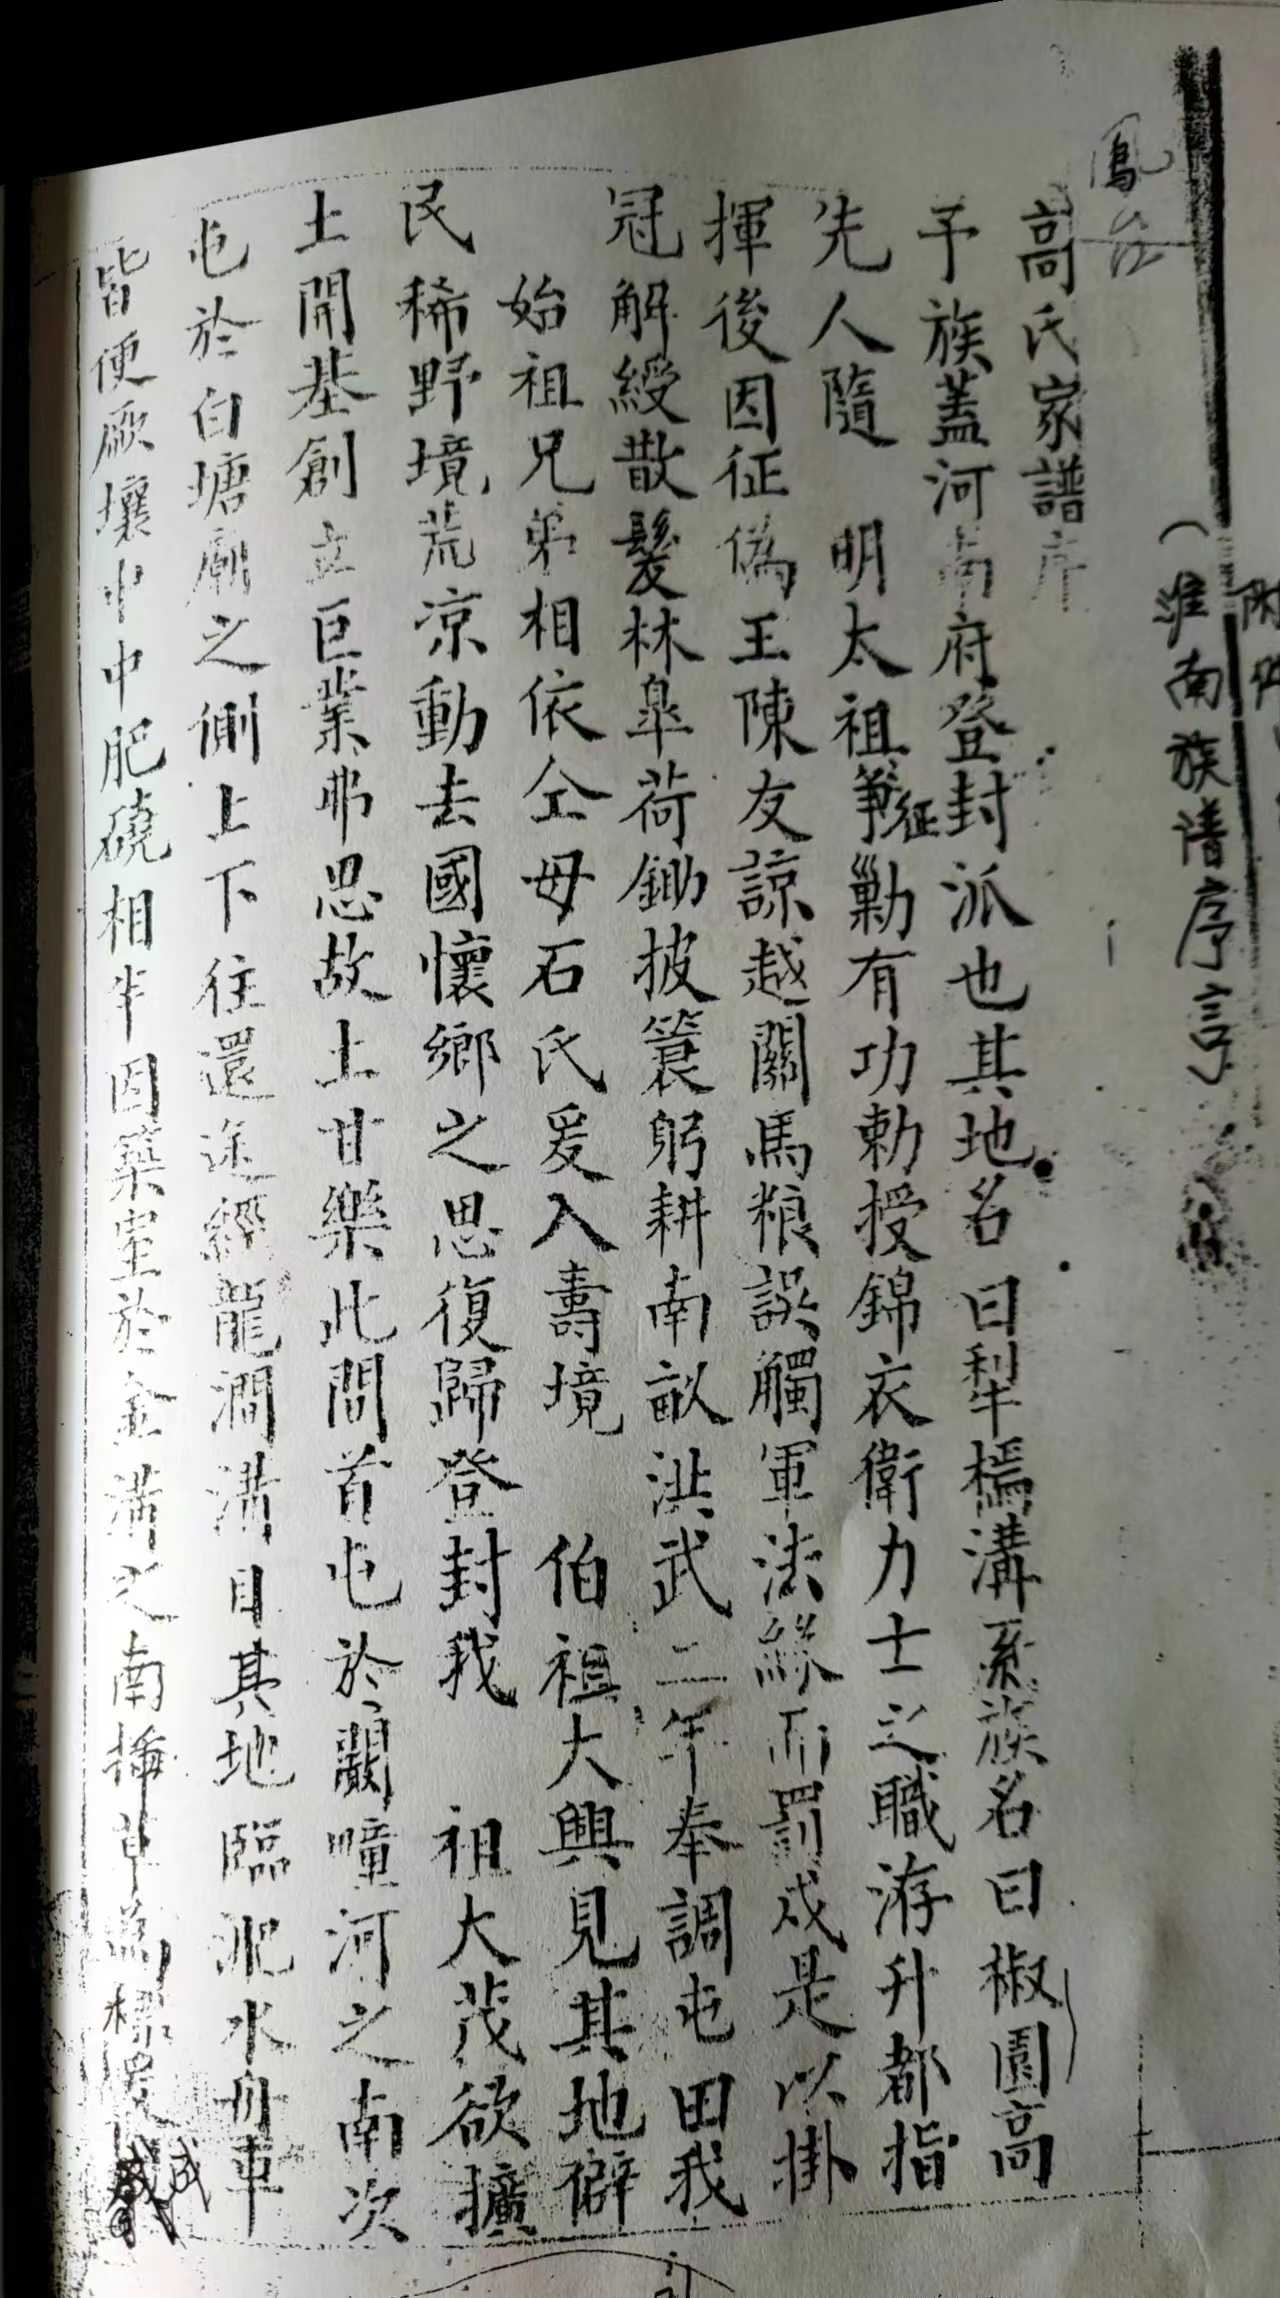 （淮南族谱序言
鳳台
高氏家譜序
予族蓋河南府登封派也其地名曰犁橋溝系族名曰椒園高
先人隨 明太祖爭征勦有功勅授錦衣衛力士之職洊升都指
揮後因征偽王陳友諒越關馬粮誤觸軍法緣而罰戍是以掛
冠解綬散髮林皐荷鋤披簑躬耕南畝洪武二年奉調屯田我
始祖兄弟相依仝母石氏爰入壽境 伯祖大興見其地僻
民稀野境荒凉動去國懷鄉之思復歸登封我 祖大茂欲擴
土開基創立巨業弗思故土甘樂此間首屯於闞疃河之南次
屯於白塘廟之側上下往還途經龍澗溝目其地臨淝水舟車
皆便厥壤中中肥磽相半因築室於金溝之南插草為標